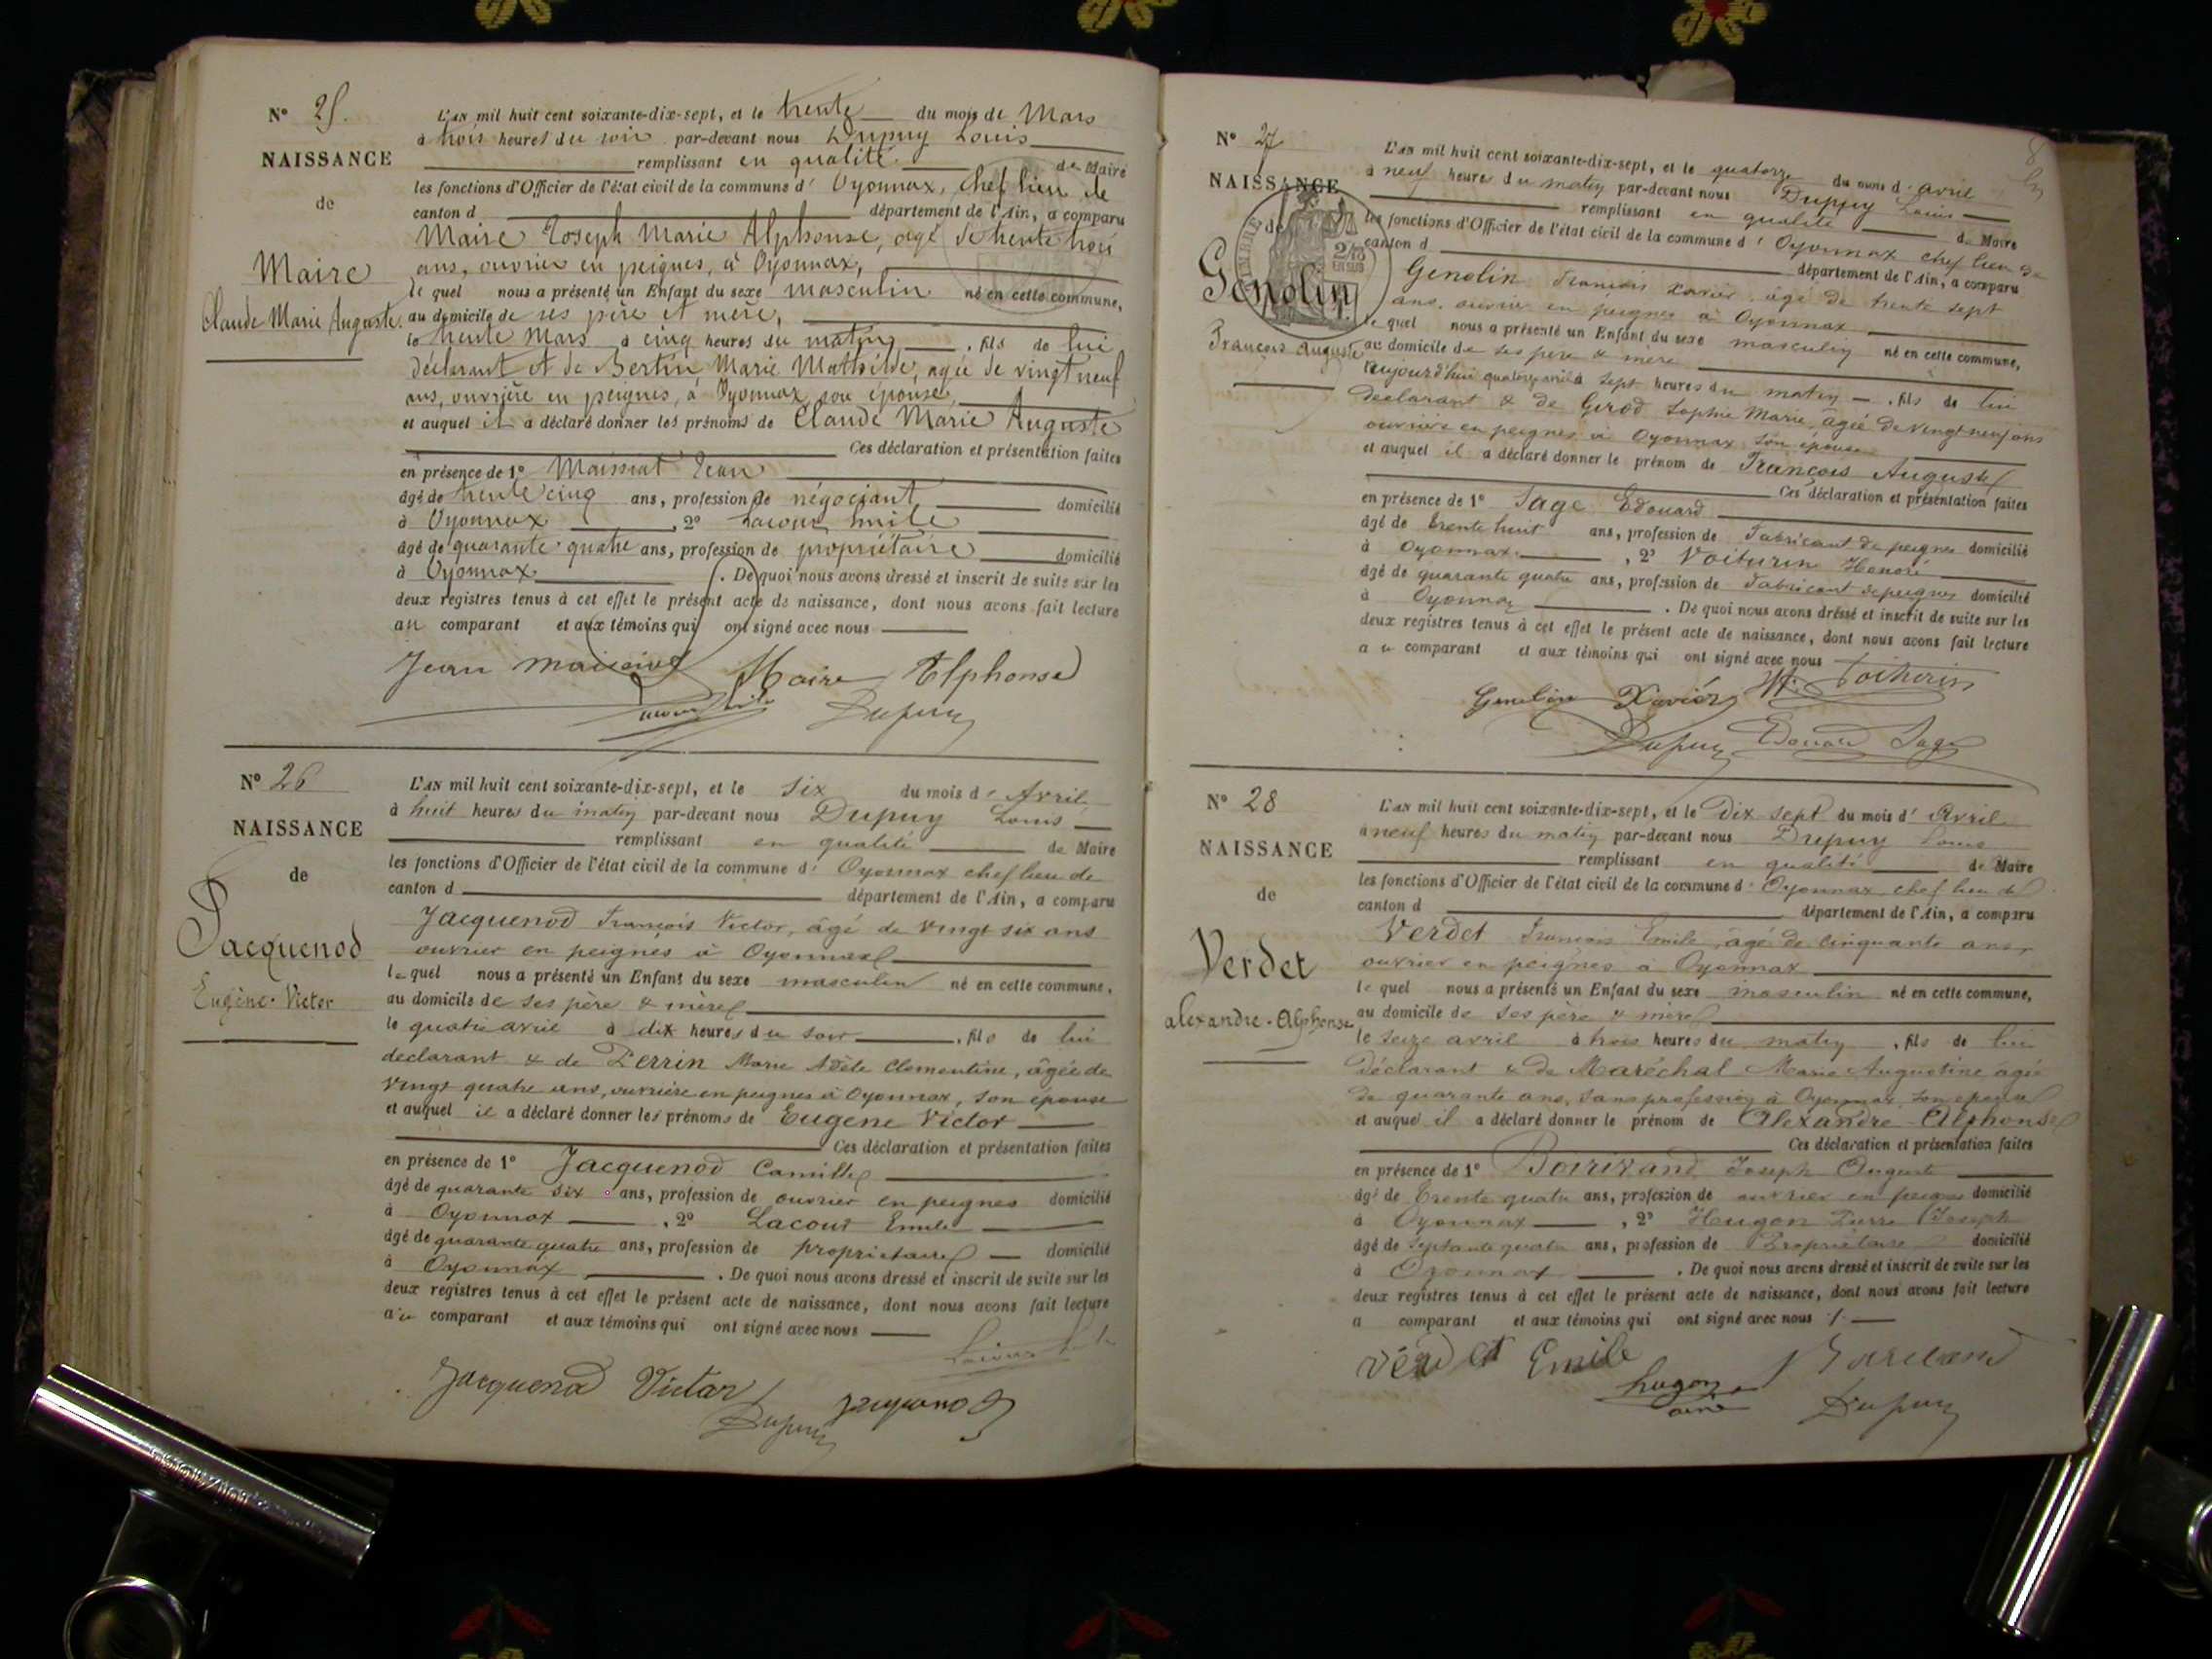 N° 25.
NAISSANCE
de
Maire
Claude Marie Auguste.
L'AN mil huit cent soixante-dix-sept, et le trente du mois de Mars
à trois heures du soir par-devant nous Dupuy Louis
remplissant en qualité de Maire
les fonctions d'Officier de l'état civil de la commune d' Oyonnax, chef lieu de
canton d département de l'Ain, a comparu
Maire Joseph Marie Alphonse, âgé de trente trois
ans, ouvrier en peignes, à Oyonnax,
le quel nous a présenté un Enfant du sexe masculin né en cette commune,
au domicile de ses père et mère,
le trente Mars à cinq heures du matin, fils de lui
déclarant et de Bertin Marie Mathilde, agée de vingt neuf
ans, ouvrière en peignes, à Oyonnax, son épouse,
et auquel il a déclaré donner les prénoms de Claude Marie Auguste
Ces déclaration et présentation faites
en présence de 1° Maissiat Jean
âgé de trente cinq ans, profession de négociant domicilié
à Oyonnax, 2° Lacour Emile
âgé de quarante quatre ans, profession de propriétaire domicilié
à Oyonnax. De quoi nous avons dressé et inscrit de suite sur les
deux registres tenus à cet effet le présent acte de naissance, dont nous avons fait lecture
au comparant et aux témoins qui ont signé avec nous
Jean Maissiat Maire Alphonse
Dupuy
N° 26
NAISSANCE
de
Jacquenod
Eugène-Victor
L'AN mil huit cent soixante-dix-sept, et le six du mois d' Avril
à huit heures du matin par-devant nous Dupuy Louis
remplissant en qualité de Maire
les fonctions d'Officier de l'état civil de la commune d' Oyonnax chef lieu de
canton d département de l'Ain, a comparu
Jacquenod François Victor, âgé de vingt six ans
ouvrier en peignes à Oyonnax
le quel nous a présenté un Enfant du sexe masculin né en cette commune,
au domicile de ses père & mère
le quatre avril à dix heures du soir, fils de lui
declarant & de Perrin Marie Adèle Clementine, âgée de
vingt quatre ans, ouvrière en peignes à Oyonnax, son épouse
et auquel il a déclaré donner les prénoms de Eugene Victor
Ces déclaration et présentation faites
en présence de 1° Jacquenod Camille
âgé de quarante six ans, profession de ouvrier en peignes domicilié
à Oyonnax, 2° Lacour Emile
âgé de quarante quatre ans, profession de propriétaire domicilié
à Oyonnax. De quoi nous avons dressé et inscrit de suite sur les
deux registres tenus à cet effet le présent acte de naissance, dont nous avons fait lecture
au comparant et aux témoins qui ont signé avec nous
Jacquenod Victor
Dupuy
N° 27
NAISSANCE
de
Genolin
François Auguste
L'AN mil huit cent soixante-dix-sept, et le quatorze du mois d' avril
à neuf heures du matin par-devant nous Dupuy Louis
remplissant en qualité de Maire
les fonctions d'Officier de l'état civil de la commune d' Oyonnax chef lieu de
canton d département de l'Ain, a comparu
Genolin François Xavier, âgé de trente sept
ans, ouvrier en peignes à Oyonnax
le quel nous a présenté un Enfant du sexe masculin né en cette commune,
au domicile de ses père & mère
aujourd'hui quatorze avril à sept heures du matin, fils de lui
declarant & de Girod Sophie Marie, âgée de vingt neuf ans
ouvrière en peignes à Oyonnax son épouse
et auquel il a déclaré donner le prénom de François Auguste
Ces déclaration et présentation faites
en présence de 1° Sage Edouard
âgé de trente huit ans, profession de fabricant de peignes domicilié
à Oyonnax, 2° Voiturin Honoré
âgé de quarante quatre ans, profession de fabricant de peignes domicilié
à Oyonnax. De quoi nous avons dressé et inscrit de suite sur les
deux registres tenus à cet effet le présent acte de naissance, dont nous avons fait lecture
au comparant et aux témoins qui ont signé avec nous
Genolin Xavier
Dupuy Edouard Sage
N° 28
NAISSANCE
de
Verdet
alexandre-Alphonse
L'AN mil huit cent soixante-dix-sept, et le Dix sept du mois d' Avril
à neuf heures du matin par-devant nous Dupuy Louis
remplissant en qualité de Maire
les fonctions d'Officier de l'état civil de la commune d' Oyonnax chef lieu de
canton d département de l'Ain, a comparu
Verdet François Emile, âgé de cinquante ans,
ouvrier en peignes à Oyonnax
le quel nous a présenté un Enfant du sexe masculin né en cette commune,
au domicile de ses père & mère
le seize avril à trois heures du matin, fils de lui
déclarant & de Maréchal Marie Augustine agée
de quarante ans, sans profession à Oyonnax son épouse
et auquel il a déclaré donner le prénom de Alexandre-Alphonse
Ces déclaration et présentation faites
en présence de 1° Joseph Auguste
âgé de trente quatre ans, profession de ouvrier en peignes domicilié
à Oyonnax, 2° Hugon Pierre Joseph
âgé de septante quatre ans, profession de Propriétaire domicilié
à Oyonnax. De quoi nous avons dressé et inscrit de suite sur les
deux registres tenus à cet effet le présent acte de naissance, dont nous avons fait lecture
a comparant et aux témoins qui ont signé avec nous
Verdet Emile
hugon
ainé
Dupuy